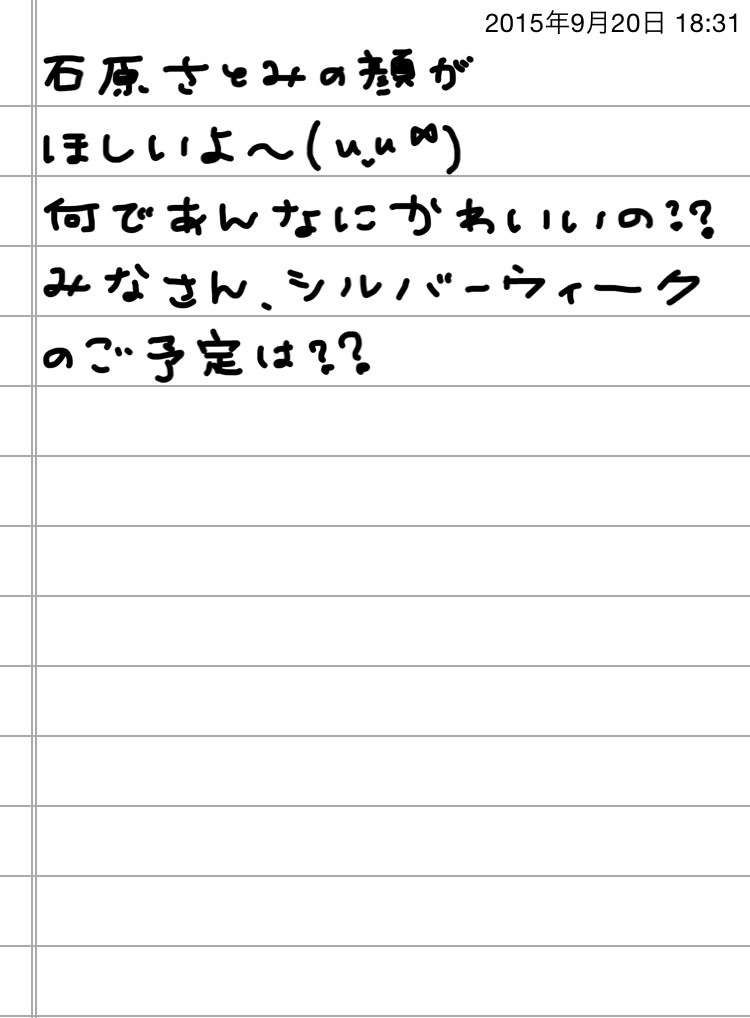 2015年9月20日 18:31
石原さとみの顔が
ほしいよ〜(u_u ∞)
何であんなにかわいいの??
みなさん、シルバーウィーク
のご予定は??